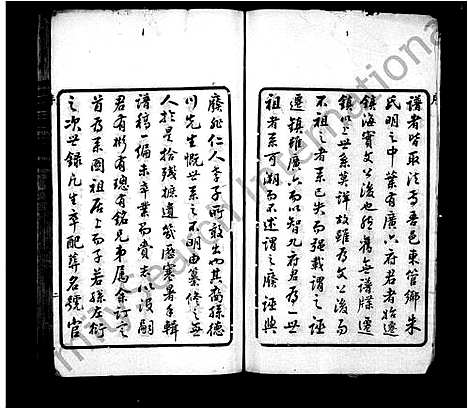 譜者皆取法焉吾邑東管鄉朱
氏明之中葉有廣六府君者始遷
鎮海實文公後也然舊無譜牒遷
鎮以上世系莫詳故雖為文公後而
不祖者系已失而強載謂之誣
遷鎮雖廣六而以智九府君為一世
祖者系可溯而不述謂之廢誣與
廢非仁人孝子所敢出也其裔孫德
川先生慨世系之不明由纂修之無
人於是拾殘摭遺歷寒暑手輯
譜稿一編未卒業而賫志以歿嗣
君有彬有總有銘兄弟屬余訂定
首為系圖祖居上而子若孫左衍
之次世錄凡生卒配葬名號官
二